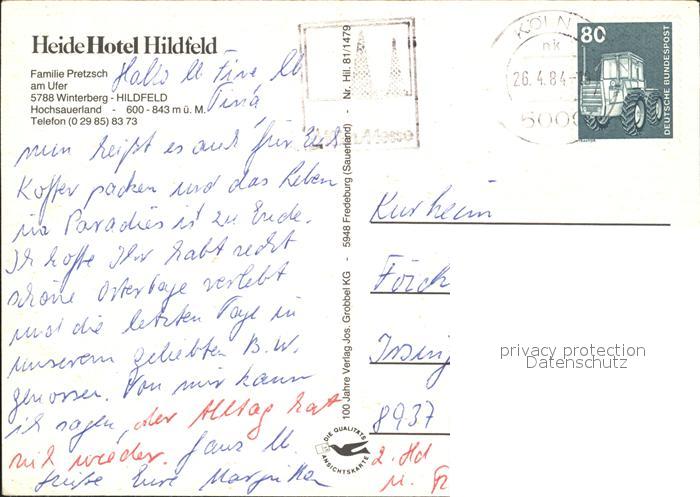 Heide Hotel Hildfeld
Familie Pretzsch
am Ufer
5788 Winterberg - HILDFELD
Hochsauerland - 600 - 843 m ü. M.
Telefon (0 29 85) 83 73
Hallo
Tina
nun heißt es auch für Euch
Koffer packen und das Leben
im Paradies ist zu Ende.
Ich hoffe Ihr habt recht
schöne Ostertage verlebt
und die letzten Tage in
unserem geliebten B.W.
genossen. Von mir kann
ich sagen, der Alltag hat
mich wieder. Ganz
Grüße Eure
100 Jahre Verlag Jos. Grobbel KG - 5948 Fredeburg (Sauerland) - Nr. Hil. 81/1479
DIE QUALITÄTS
ANSICHTSKARTE
KÖLN
nk
26.4.84
5000
80
DEUTSCHE BUNDESPOST
Kurheim
8937
2. Hd
privacy protection
Datenschutz